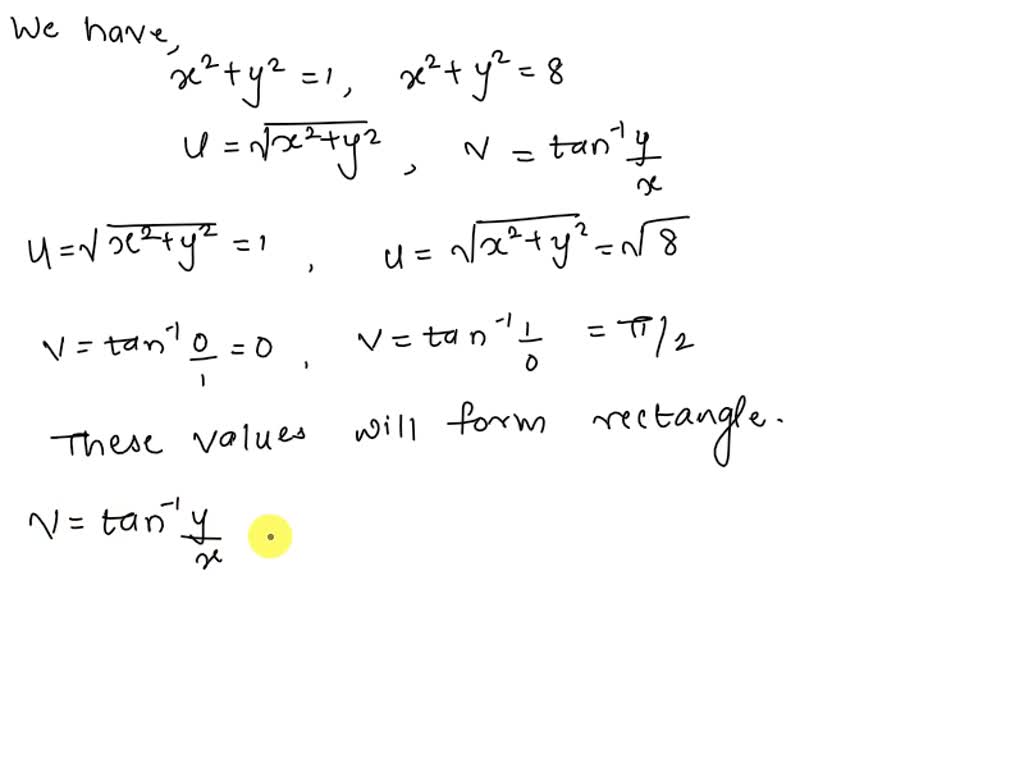 We have,
x² + y² = 1, x² + y² = 8
u = √x²+y² , v = tan⁻¹ y/x
u = √x²+y² = 1 , u = √x²+y² = √8
v = tan⁻¹ 0/1 = 0 , v = tan⁻¹ 1/0 = π/2
These values will form rectangle.
v = tan⁻¹ y/x